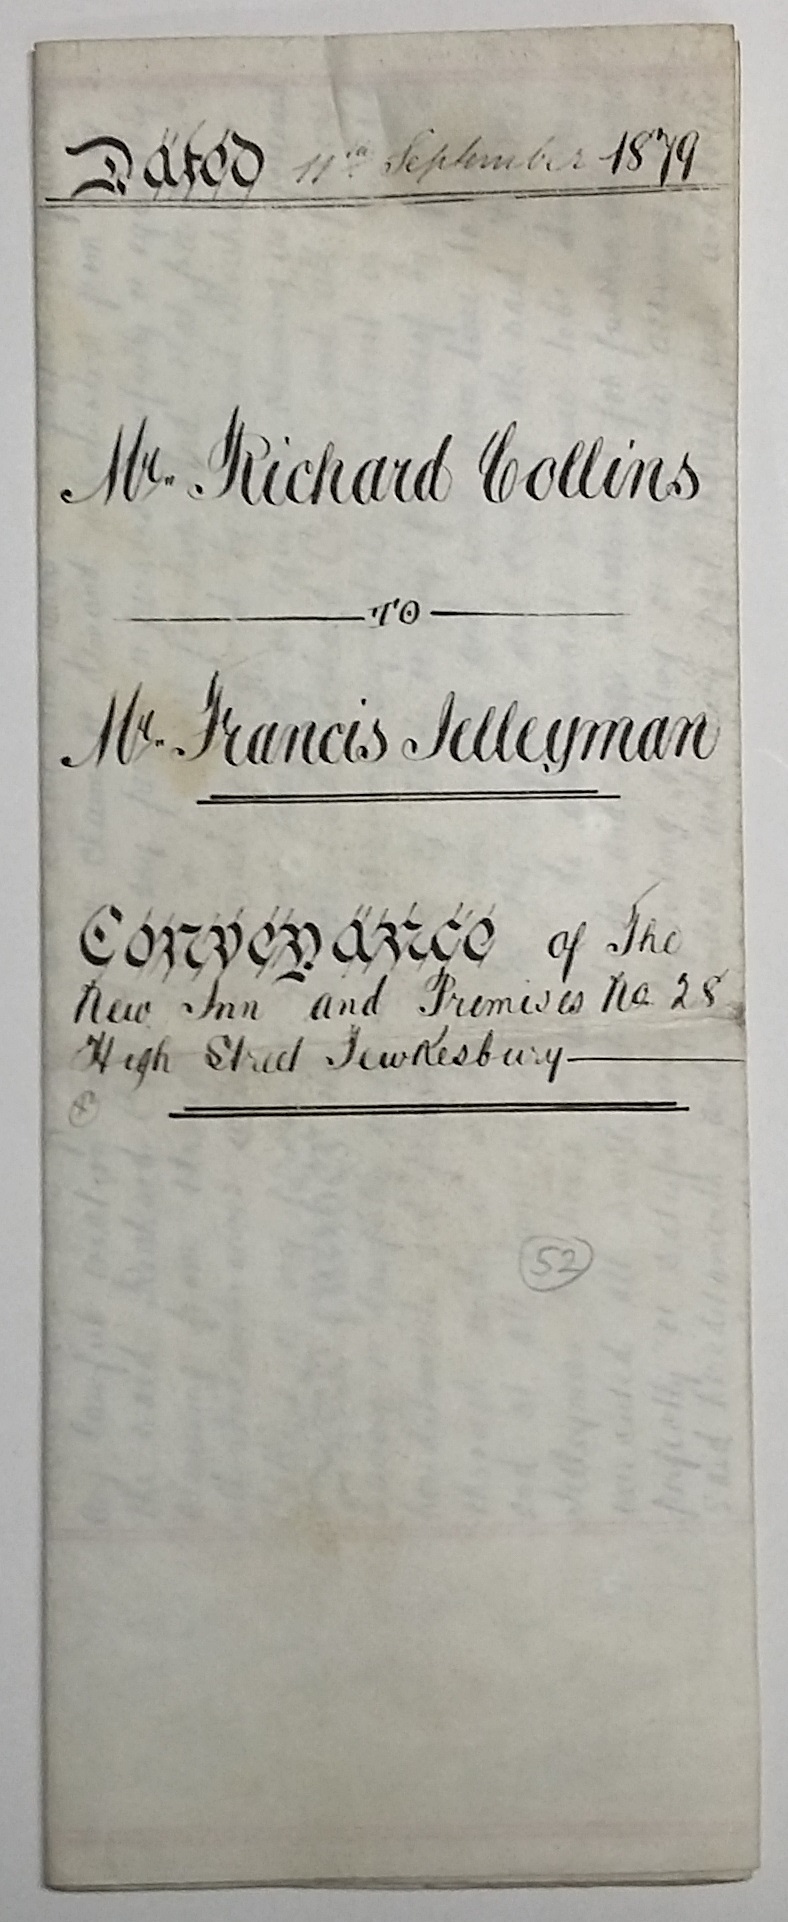 Dated 11th September 1879
Mr. Richard Collins
TO
Mr. Francis Jelleyman
Conveyance of The
New Inn and Premises No. 28
High Street Tewkesbury
52